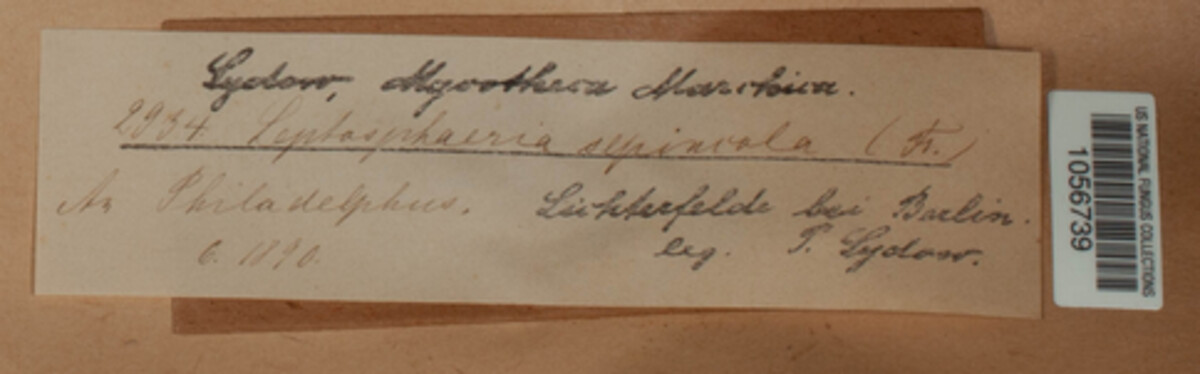 Sydow, Mycotheca Marchica.
2934 Leptosphaeria sepincola (Fr.)
An Philadelphus. Lichterfelde bei Berlin.
6. 1890. leg. P. Sydow.
US NATIONAL FUNGUS COLLECTIONS
1056739